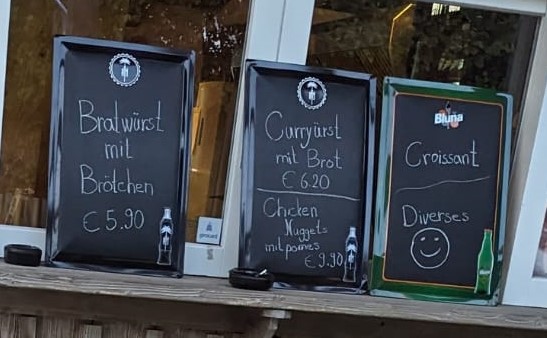 Bratwürst
mit
Brötchen
€ 5.90
Curryürst
mit Brot
€ 6.20
Chicken
Nuggets
mit pomes
€ 9.90
Bluna
Croissant
Diverses